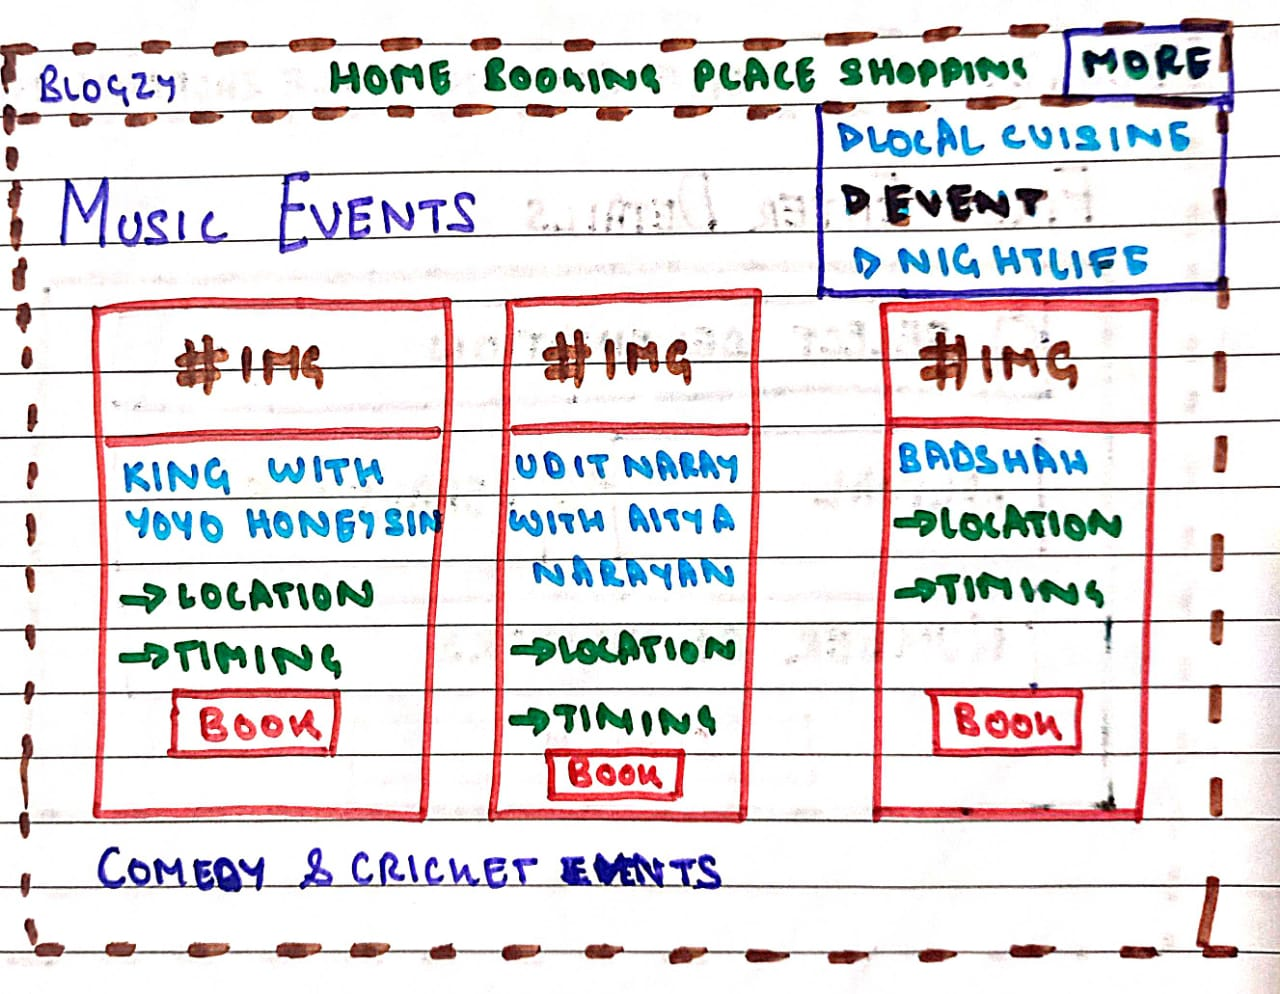 BLOGZY HOME BOOKING PLACE SHOPPING MORE
▷LOCAL CUISINE
▷EVENT
▷NIGHTLIFE
MUSIC EVENTS
#IMG
KING WITH
YOYO HONEYSIN
→LOCATION
→TIMING
BOOK
#IMG
UDIT NARAY
WITH AITYA
NARAYAN
→LOCATION
→TIMING
BOOK
#IMG
BADSHAH
→LOCATION
→TIMING
BOOK
COMEDY & CRICKET EVENTS